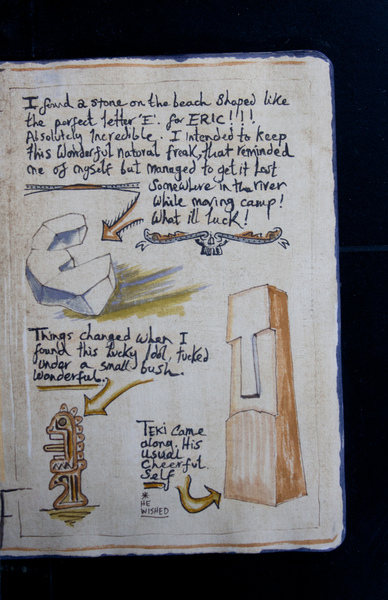 I found a stone on the beach shaped like
the perfect letter 'E'. for ERIC!!!!
Absolutely Incredible. I intended to keep
this Wonderful natural freak, that reminded
me of myself but managed to get it lost
Somewhere in the river
while moving camp!
What ill luck!
Things changed when I
found this lucky Idol, tucked
under a small bush.
Wonderful.
TEKI Came
along. His
usual
Cheerful
Self
* HE
WISHED